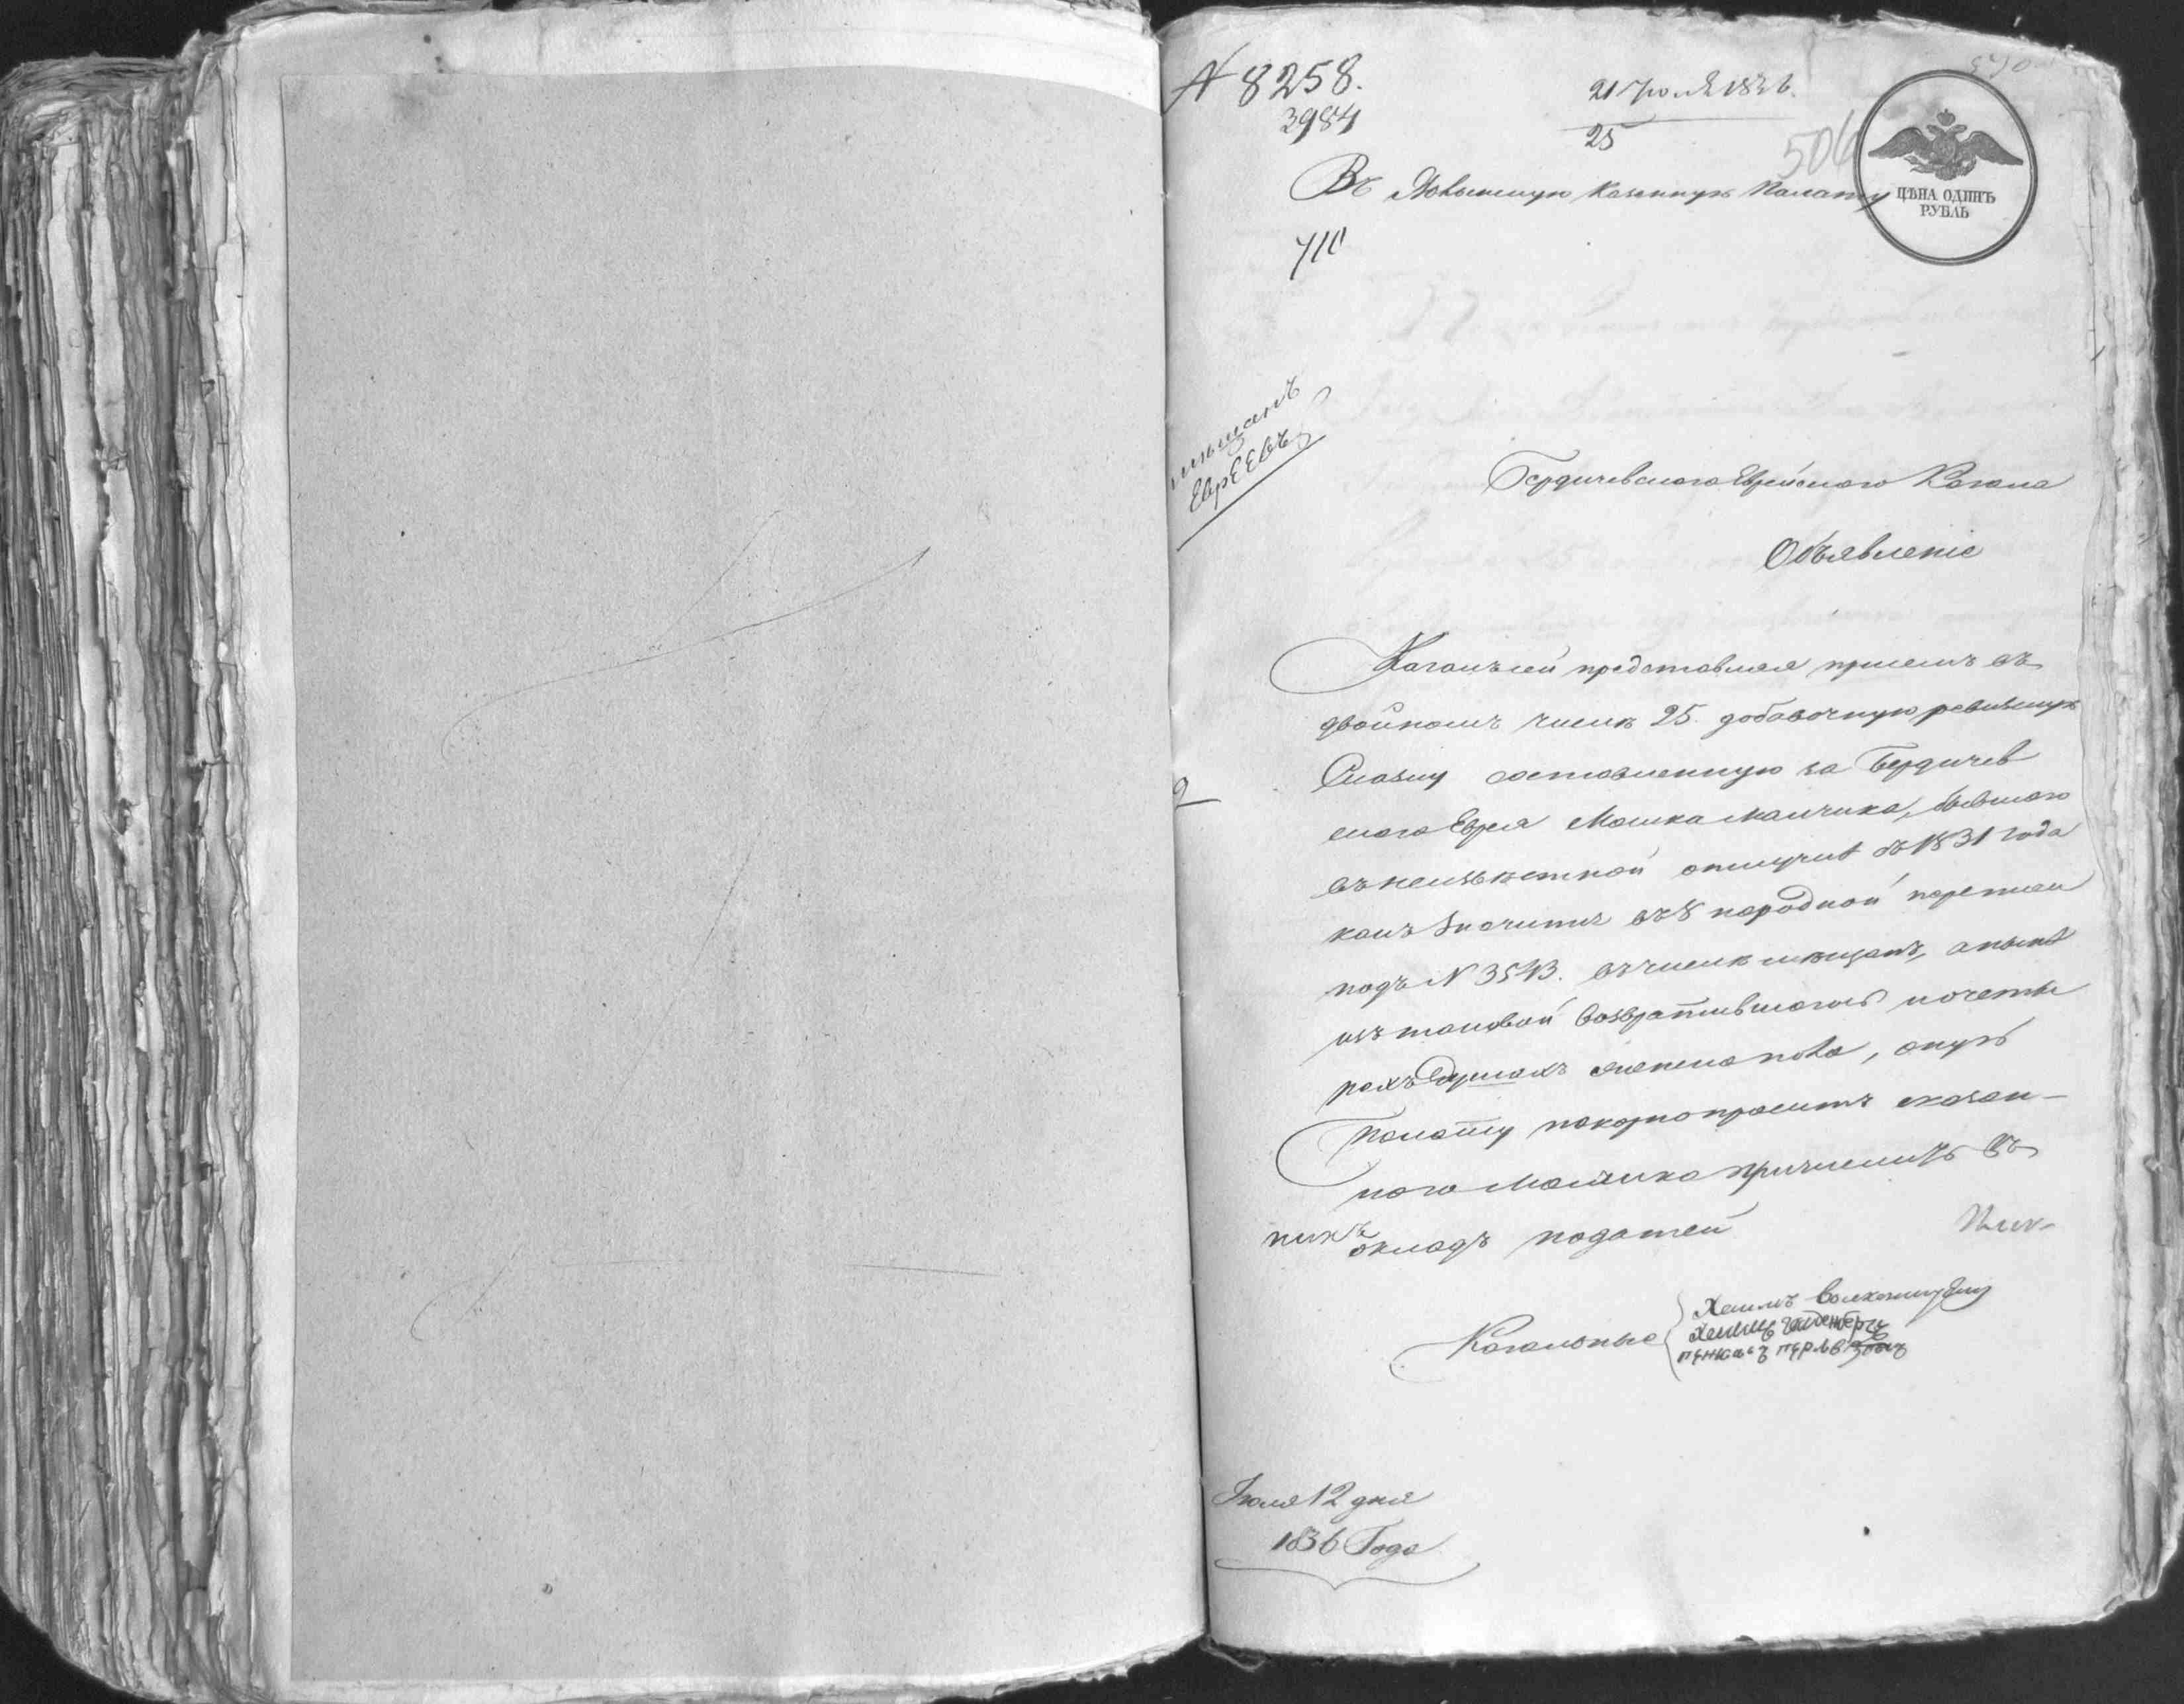 N 8258.
3984
21 Июля 1836.
25
506
ЦѢНА ОДИНЪ
РУБЛЬ
Въ Казенную Палату
710
мѣщанъ
Евреевъ
Бердичевскаго Еврейскаго Кагала
Объявленіе
Кагалъ сей представляя присемъ въ
двойномъ числѣ 25. добавочную ревизскую
Сказку составленную за Бердичев
скаго Еврея Мошка бывшаго
въ неизвѣстной отлучкѣ съ 1831 года
какъ значитъ въ 8 народной переписи
подъ N 3543. въ числѣ мѣщанъ, а нынѣ
изъ таковой возвратившагось и о четы
рехъ душахъ оную
Палату покорно проситъ сказан-
наго причислить въ
окладъ податей
Кагальные
Хаимъ
Хаимъ
пинкасъ
Июля 12 дня
1836 Года